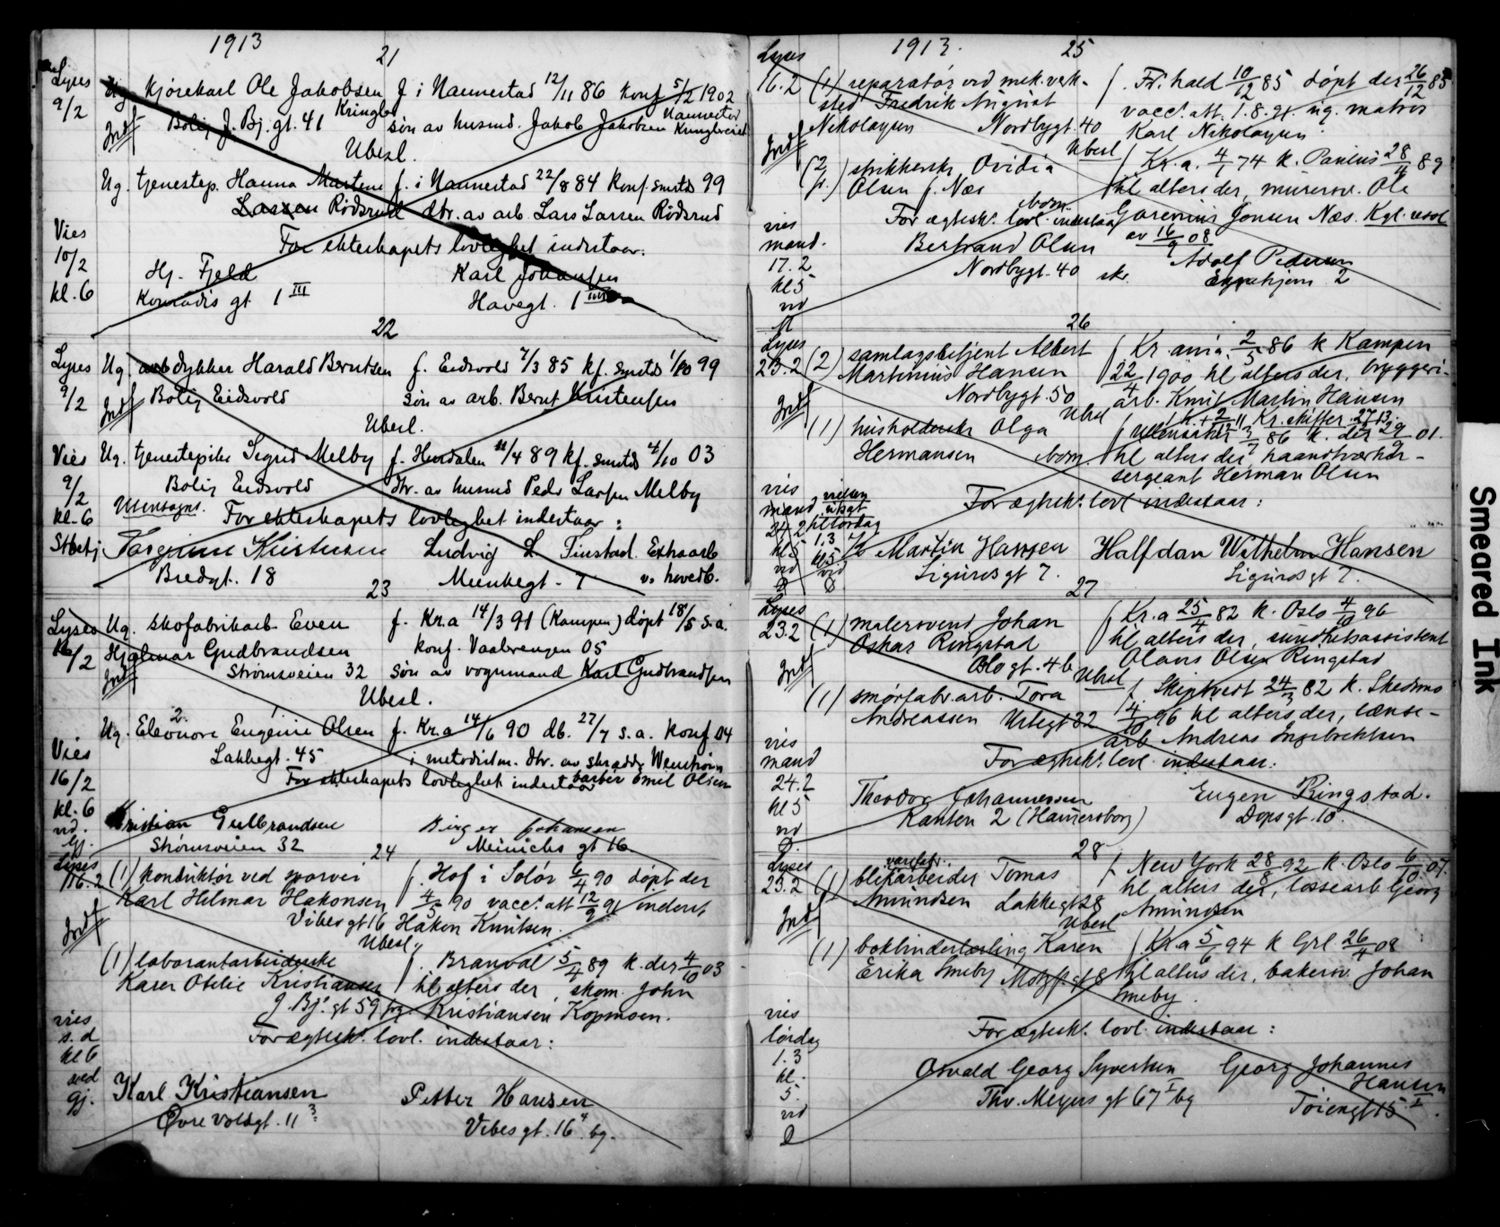 1913
21
Lyses
9/2
Ug. kjørekarl Ole Jakobsen f i Nannestad 12/11 86 konf 5/2 1902
Kringler Nannestad
Bolig J. Bj. gt. 41 søn av husmd. Jakob Jakobsen
Indf
Ubesl.
Ug. tjenestep. Hanna Martine f. i Nannestad 22/8 84 konf. smsts 99
Larsen Rødsrud dtr. av arb. Lars Larsen Rødsrud
For ekteskapets lovlighet indestaar.
Vies
10/2
kl. 6
Hj. Fjeld Karl Johansen
Konradis gt 1 III Havegt. 1
22
Lyses
9/2
Ug. arb dykker Harald Berntsen f. Eidsvold 7/3 85 kf. smsts 1/10 99
Bolig Eidsvold søn av arb. Bernt Kristensen
Indf
Ubesl.
Vies
9/2
kl. 6
Ug. tjenestepike Sigrid Melby f. Hurdalen 11/4 89 kf. smsts 4/10 03
Bolig Eidsvold dtr. av husmd Peder Larsen Melby
For ekteskapets lovlighet indestaar:
Stbetj Kristensen Ludvig L. Finstad Extraarb
Bredgt. 18 Munkegt. 7 v. hovedb.
23
Lyses
16/2
Ug. skofabrikarb. Even f. Kr.a 14/3 91 (Kampen) døpt 18/5 s.a.
Hjalmar Gudbrandsen konf. Vaalerengen 05
Indf
Strømsveien 32 søn av vognmand Karl Gudbrandsen
Ubesl.
Ug. Eleonore Eugenie Olsen f. Kr.a 14/6 90 db. 27/7 s.a. konf 04
Lakkegt. 45 i metodistm. dtr. av
barber Emil Olsen
For ekteskapets lovlighet indestaar
Vies
16/2
kl. 6
vd.
Gj.
Kristian Gulbrandsen Birger Johansen
Strømsveien 32 Meinichs gt 16
24
Lyses
16.2
(1) konduktør ved sporvei f. Hof i Solør 6/4 90 døpt der
Karl Hilmar Hakonsen 4/5 90 vacc. att 12/9 91 inderst
Vibesgt 16 Håkon Knutsen.
Indf
Ubesl.
(1) laborantarbeiderske f. Branval 5/4 89 k. der 4/10 03
Karen Otilie Kristiansen til alters der, skom. John
J. Bj. gt 59 bg Kristiansen Kopmoen.
vies
s.d
kl 6
ved
Gj.
For ægtesk. lovl. indestaar:
Karl Kristiansen Petter Hansen
Øvre Voldgt. 11 3 Vibesgt. 16 4 bg.
1913.
25
Lyses
16.2
(1) reparatør ved mek. verk- f. Fr.hald 10/12 85 døpt der 26/12 85
sted Fredrik August vacc. att. 1.8.91. ug. matros
Nikolaysen Nordbygt. 40 Karl Nikolaysen
Indf
Ubesl
(2) strikkerske Ovidia f. Kr.a. 4/7 74 k. Paulus 28/4 89
Olsen f. Næs til alters der, murersv. Ole
For ægtesk. lovl. indestaar Gorenius Jonsen Næs. Kgl. resol
av 16/9 08
vies
mand.
17.2
kl 5
vd
Bertrand Olsen Adolf Pedersen
Nordbygt. 40 2
26
Lyses
23.2
(2) samlagsbetjent Albert f. Kr.ania. 2/5 86 k Kampen
Martinius Hansen 22/4 1900 til alters der, bryggeri-
Nordbygt. 50 arb. Knut Martin Hansen
Indf
Ubesl
(1) husholderske Olga f. Ullensaker 3/7 86 k. der 29/9 01.
Hermansen til alters der, haandverker-
sergeant Herman Olsen
For ægtesk. lovl indestaar:
vies
mand
24.2
kl 5
vd
vielsen
utsat
til lørdag
1.3
kl 5
vd
Martin Hansen Halfdan Wilhelm Hansen
Sigurdsgt 7. Sigurdsgt 7.
27
Lyses
23.2
(1) malersvend Johan f. Kr.a 25/4 82 k. Oslo 4/10 96
Oskar Ringstad til alters der, sundhetsassistent
Oslogt. 46 Olaus Olsen Ringstad
Indf
Ubesl
(1) smørfabr.arb. Tora f. Skiptvedt 24/3 82 k. Skedsmo
Andreassen Urtegt 32 4/10 96 til alters der, lænse-
arb. Andreas Ingebrektsen
For ægtesk. lovl. indestaar:
vies
mand
24.2
kl 5
vd
Theodor Johannessen Eugen Ringstad.
Kanten 2 (Hamersborg) Dopsgt. 10.
28
Lyses
23.2
varefabr.
(1) blikarbeider Tomas f. New York 28/8 92 k. Oslo 6/10 07.
Amundsen Lakkegt 28 til alters der, lossearb Georg
Amundsen
Indf
Ubesl
(1) bokbinderlærling Karen f. Kr.a 5/6 94 k Grl 26/4 08
Erika Smeby til alters der, bakersv. Johan
Smeby.
For ægtesk. lovl. indestaar:
vies
lørdag
1.3
kl.
5.
vd
Osvald Georg Syversen Georg Johannes
Hansen
Thv. Meyers gt 67 I bg Tøiengt 15 I
Smeared Ink